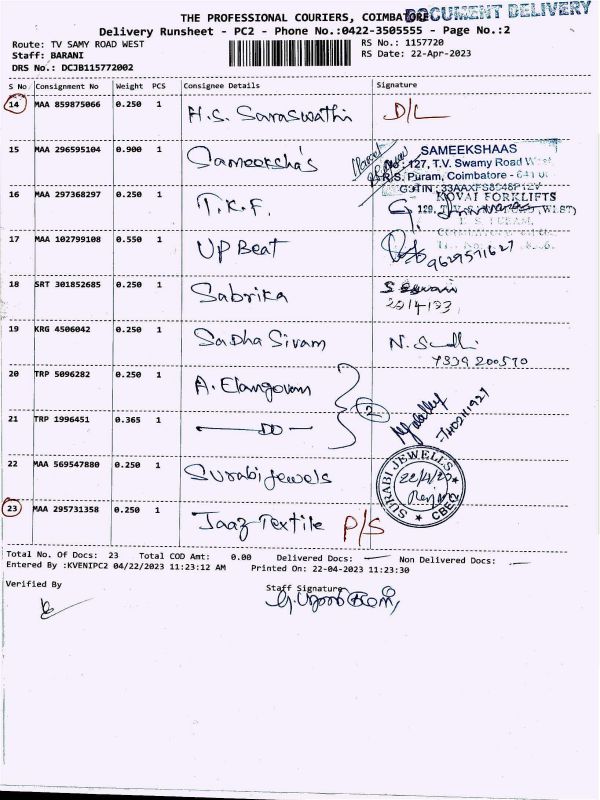 THE PROFESSIONAL COURIERS, COIMBATORE
DOCUMENT DELIVERY
Delivery Runsheet - PC2 - Phone No.:0422-3505555 - Page No.:2
Route: TV SAMY ROAD WEST
RS No.: 1157720
Staff: BARANI
RS Date: 22-Apr-2023
DRS No.: DCJB115772002
S No Consignment No Weight PCS Consignee Details Signature
14 MAA 859875066 0.250 1 H.S. Saraswathi D/L
15 MAA 296595104 0.900 1 Sameeksha's
SAMEEKSHAAS
127, T.V. Swamy Road West
R.S. Puram, Coimbatore - 641 002
GSTIN : 33AAXFS8648P1ZV
16 MAA 297368297 0.250 1 T.K.F.
KOVAI FORKLIFTS
17 MAA 102799108 0.550 1 UP Beat 9629571627
18 SRT 301852685 0.250 1 Sabrika
19 KRG 4506042 0.250 1 Sadha Sivam N. Sudhi
7339200570
20 TRP 5096282 0.250 1 A. Elangovan
2
21 TRP 1996451 0.365 1 DO
22 MAA 569547880 0.250 1 Surabi Jewels
SURABI JEWELLS
CBE-2
23 MAA 295731358 0.250 1 Jaaz Textile P/S
Total No. Of Docs: 23 Total COD Amt: 0.00 Delivered Docs: Non Delivered Docs:
Entered By :KVENIPC2 04/22/2023 11:23:12 AM Printed On: 22-04-2023 11:23:30
Verified By
Staff Signature